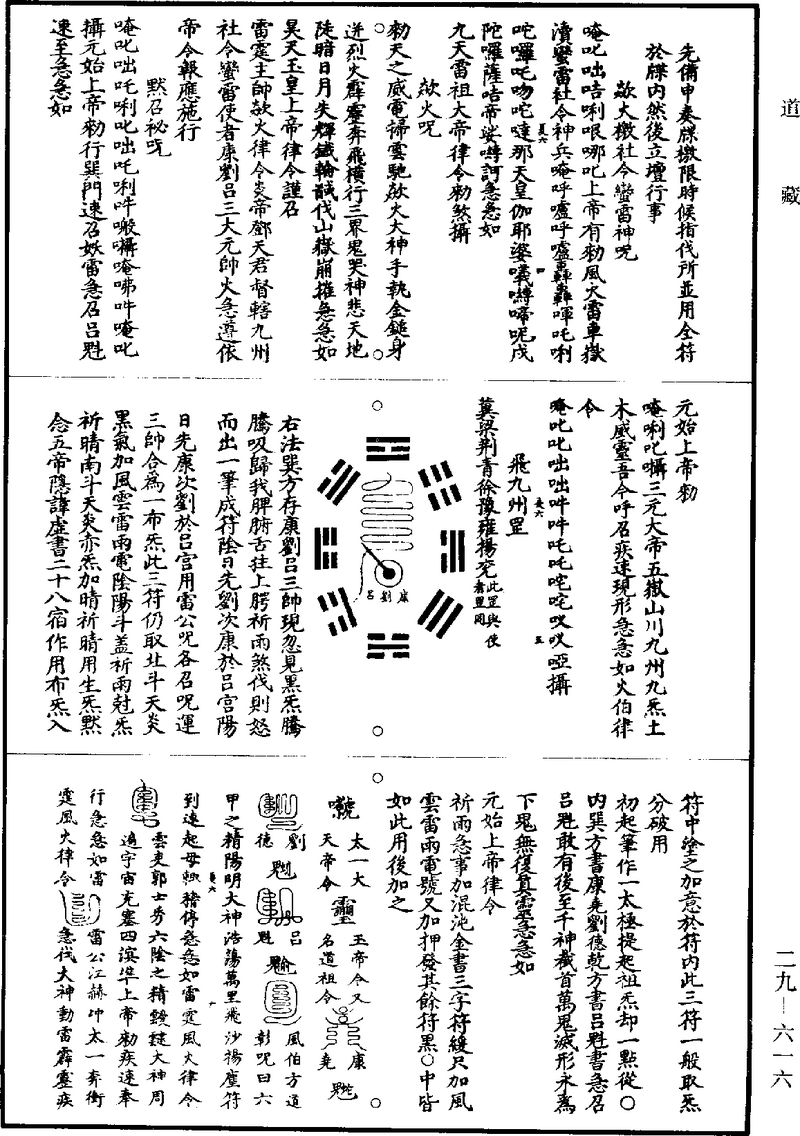 道藏
先備申奏牒檄限時候指伐所並用全符
於牒内然後立壇行事
欻火檄社令蠻雷神呪
唵叱咄咭唎哏哪叱上帝有勑風火雷車嶽
瀆蠻雷社令神兵唵呼嚧呼嚧轟轟㖀吒唎
咜囉吒吻咜噠那天皇伽耶婆㘈嚩啼呢戍
陀囉薩咭帝娑嚩訶急急如
九天雷祖大帝律令勑煞攝
欻火呪
勑天之威電掃雲馳欻火大神手執金鎚身
迸烈火霹靂奔飛橫行三界鬼哭神悲天地
陡暗日月失輝鐵輪馘伐山嶽崩摧急急如
昊天玉皇上帝律令謹召
雷霆主帥欻火律令炎帝鄧天君督轄九州
社令蠻雷使者康劉呂三大元帥火急遵依
帝令報應施行
默召祕呪
唵叱咄吒唎叱咄吒唎吽囑唵吽唵叱
攝元始上帝勑行巽門速召妖雷急召呂魁
速至急急如
元始上帝勑
唵唎叱囁三元大帝五嶽山川九州九炁土
木威靈吾今呼召疾速現形急急如火伯律
令
唵叱叱咄咄吽吽吒吒咜咜㕞㕞啞攝
飛九州罡
冀梁荆青徐豫雍揚兖此罡與使者罡同
康劉呂
右法巽方存康劉呂三帥現忽見黑炁騰
騰吸歸我脾腑舌拄上腭祈雨煞伐則怒
而出一筆成符陰日先劉次康於呂宮陽
日先康次劉於呂宮用雷公呪各召呪運
三帥合爲一布炁此三符仍取北斗天炎
黑氣加風雲雷雨電陰陽斗蓋祈雨尅炁
祈晴南斗天炎亦炁加晴祈晴用生炁默
念五帝隱諱虛書二十八宿作用布炁入
符中塗之加意於符内此三符一般取炁
分破用
初起筆作一太極提起祖炁却一點從○
内巽方書康堯劉德乾方書呂魁書急召
呂魁敢有後至千神截首萬鬼滅形永爲
下鬼無復眞靈急急如
元始上帝律令
祈雨急事加混沌全書三字符緩只加風
雲雷雨電號又加押發其餘符黑○中皆
如此用後加之
太一大
天帝令
玉帝令又
名道祖令
康
堯
劉
德
呂
魁
風伯方道
彰呪曰六
甲之精陽明大神浩蕩萬里飛沙揚塵符
到速起毋輒稽停急急如雷霆風火律令
雲吏郭士秀六陰之精靉靆大神周
遍宇宙充塞四溟準上帝勑疾速奉
行急急如雷
霆風火律令
雷公江赫冲太一奔衝
急伐大神動雷霹靂疾
二九—六一六